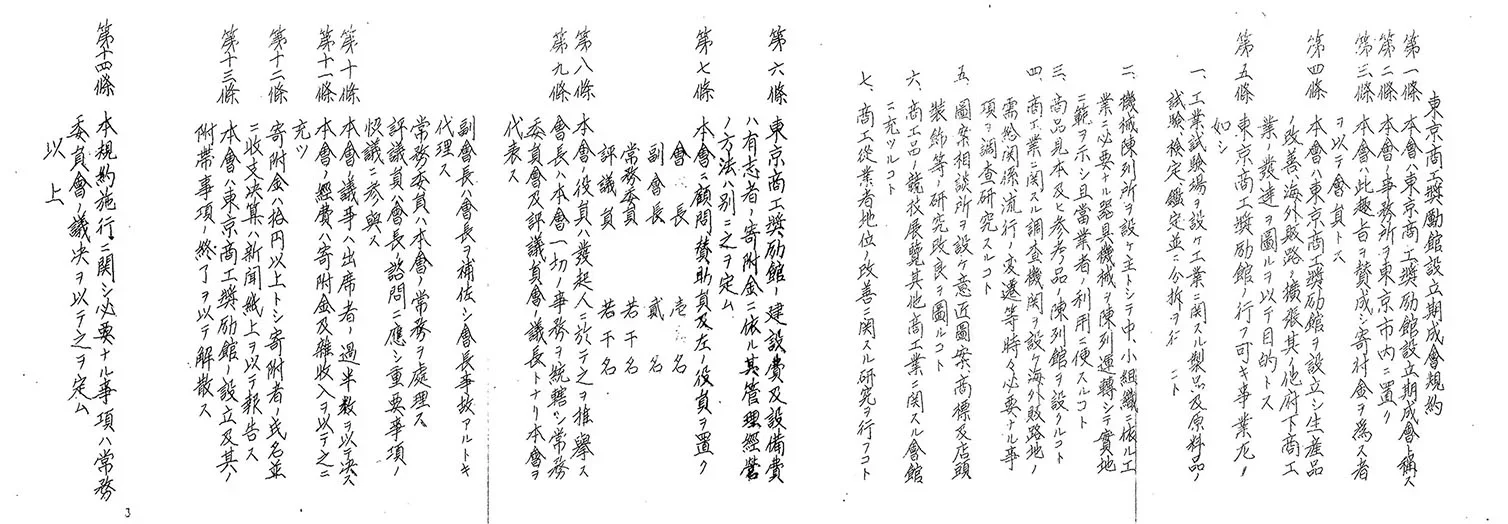 東京商工奬勵館設立期成會規約
第一條 本會ハ東京商工奬励館設立期成會ト稱ス
第二條 本會ノ事務所ヲ東京市内ニ置ク
第三條 本會ハ此趣旨ヲ賛成シ寄付金ヲ為ス者
ヲ以テ會員トス
第四條 本會ハ東京商工奬励館ヲ設立シ生産品
ノ改善海外販路ノ擴張其ノ他府下商工
業ノ發達ヲ圖ルヲ以テ目的トス
第五條 東京商工奬励館ノ行フ可キ事業左ノ
如シ
一、工業試驗場ヲ設ケ工業ニ関スル製品及原料品ノ
試驗檢定鑑定並ニ分析ヲ行フコト
二、機械陳列所ヲ設ケ主トシテ中、小組織ニ依ル工
業ニ必要ナル器具機械ヲ陳列運轉シテ實地
ニ範ヲ示シ且當業者ノ利用ニ便スルコト
三、商品見本及ヒ参考品ノ陳列館ヲ設クルコト
四、商工業ニ関スル調査機関ヲ設ケ海外販路地ノ
需給関係流行ノ変遷等時々必要ナル事
項ヲ調査研究スルコト
五、圖案相談所ヲ設ケ意匠圖案商標及店頭
装飾等ノ研究改良ヲ圖ルコト
六、商工品ノ競技展覽其他商工業ニ関スル會館
ニ充ツルコト
七、商工從業者地位ノ改善ニ関スル研究ヲ行フコト
第六條 東京商工奬励館ノ建設費及設備費
ハ有志者ノ寄附金ニ依ル其管理經營
ノ方法ハ別ニ之ヲ定ム
第七條 本會ニ顧問賛助員及左ノ役員ヲ置ク
會長 壱名
副會長 貳名
常務委員 若干名
評議員 若干名
第八條 本會ノ役員ハ發起人ニ於テ之ヲ推舉ス
第九條 會長ハ本會一切ノ事務ヲ統轄シ常務
委員會及評議員會ノ議長トナリ本會ヲ
代表ス
副會長ハ會長ヲ補佐シ會長事故アルトキ
代理ス
常務委員ハ本會ノ常務ヲ處理ス
評議員ハ會長ノ諮問ニ應シ重要事項ノ
恊議ニ参與ス
第十條 本會ノ議事ハ出席者ノ過半数ヲ以テ決ス
第十一條 本會ノ經費ハ寄附金及雜收入ヲ以テ之ニ
充ツ
第十二條 寄附金ハ拾円以上トシ寄附者ノ氏名並
ニ收支決算ハ新聞紙上ヲ以テ報告ス
第十三條 本會ハ東京商工奬励館ノ設立及其ノ
附帯事項ノ終了ヲ以テ解散ス
第十四條 本規約施行ニ関シ必要ナル事項ハ常務
委員會ノ議決ヲ以テ之ヲ定ム
以上
3